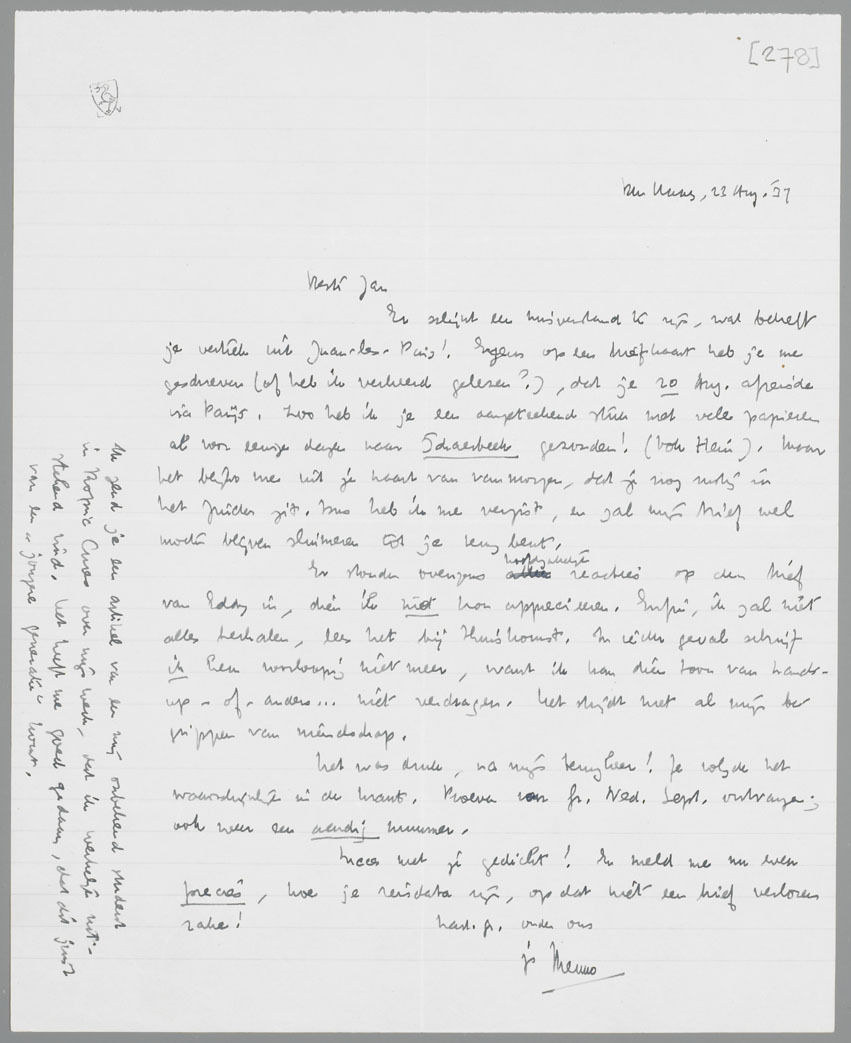 [278]
Den Haag, 23 Aug. '37
Beste Jan
Er schijnt een misverstand te zijn, wat betreft
je vertrek uit Juan-les-Pins! Ergens op een briefkaart heb je me
geschreven (of heb ik verkeerd gelezen?), dat je 20 Aug. afreisde
via Parijs. Zoo heb ik je een aangeteekend stuk met vele papieren
al voor eenige dagen naar Schaerbeek gezonden! (Van Hein). Maar
het blijkt me uit je kaart van vanmorgen, dat je nog rustig in
het Zuiden zit. Dus heb ik me vergist, en zal mijn brief wel
moeten blijven sluimeren tot je terug bent.
Er stonden overigens hoofdzakelijk reacties op den brief
van Eddy in, dien ik niet kon apprecieeren. Enfin, ik zal niet
alles herhalen, lees het bij thuiskomst. In ieder geval schrijf
ik hem voorloopig niet meer, want ik kan dien toon van hands-
up-of-anders... niet verdragen. Het strijdt met al mijn be-
grippen van vriendschap.
Het was druk, na mijn terugkeer! Je volgde het
waarschijnlijk in de krant. Proeven van Gr. Ned. Sept. ontvangen;
ook weer een aardig nummer.
Succes met je gedicht! En meld me nu even
precies, hoe je reisdata zijn, opdat niet een brief verloren
rake!
hart. gr. onder ons
je Menno
Ik zend je een artikel van een mij onbekend student
in Propria Cures over mijn werk, dat ik werkelijk uit-
stekend vind. Het heeft me goed gedaan, dat dit juist
van een „jongere generatie" komt.